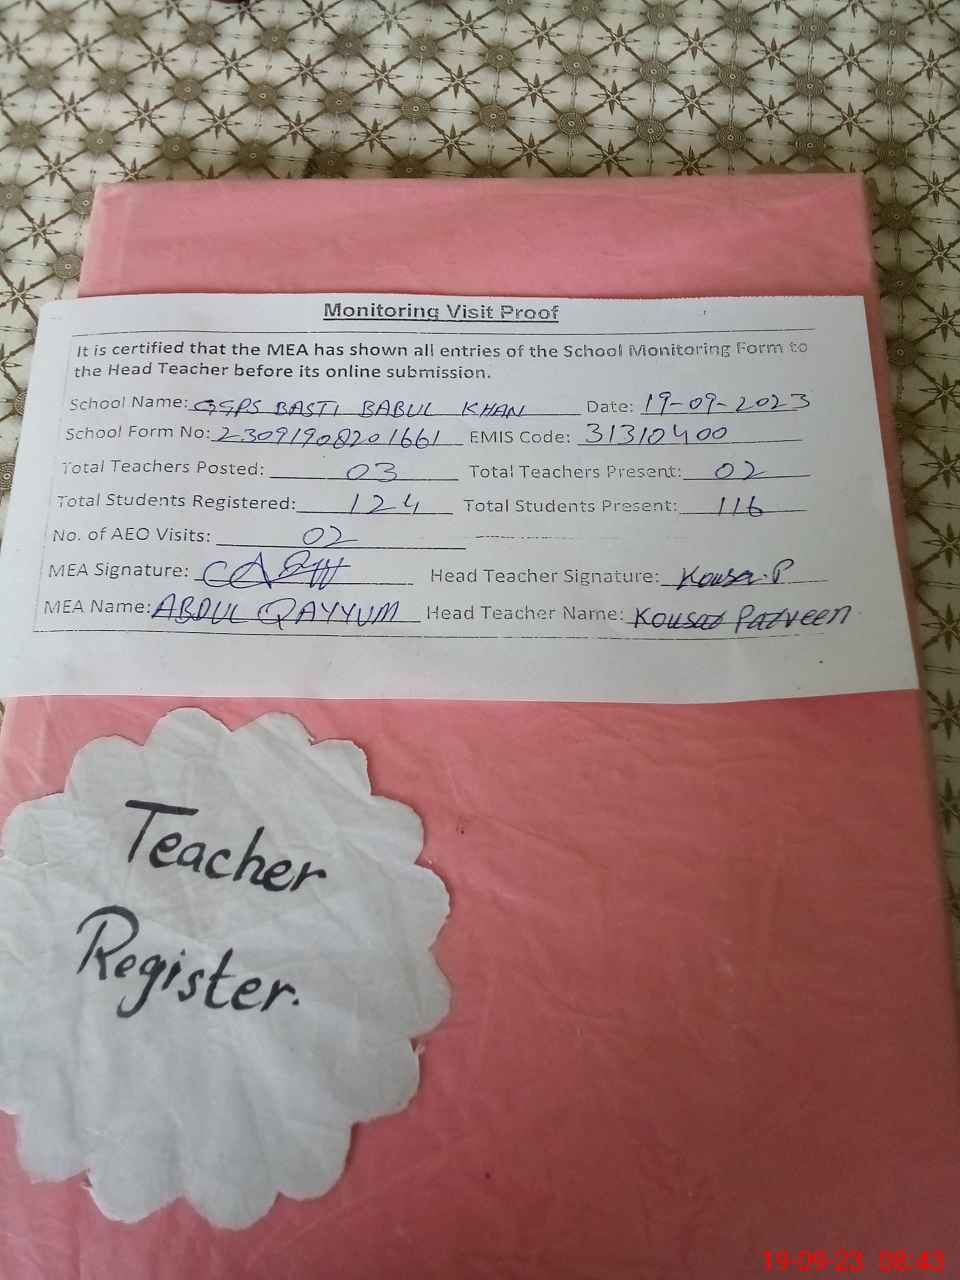 Monitoring Visit Proof
It is certified that the MEA has shown all entries of the School Monitoring Form to
the Head Teacher before its online submission.
School Name: GGPS BASTI BABUL KHAN Date: 19-09-2023
School Form No: 23091908201661 EMIS Code: 31310400
Total Teachers Posted: 03 Total Teachers Present: 02
Total Students Registered: 124 Total Students Present: 116
No. of AEO Visits: 02
MEA Signature: Head Teacher Signature: Kousar.P
MEA Name: ABDUL QAYYUM Head Teacher Name: Kousar Parveen
Teacher
Register.
19-09-23 08:43